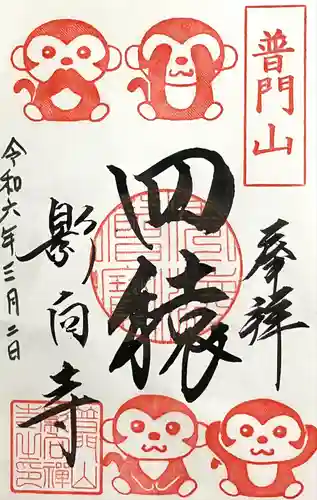 普門山
奉祥
四猿
影向寺
令和六年三月二日